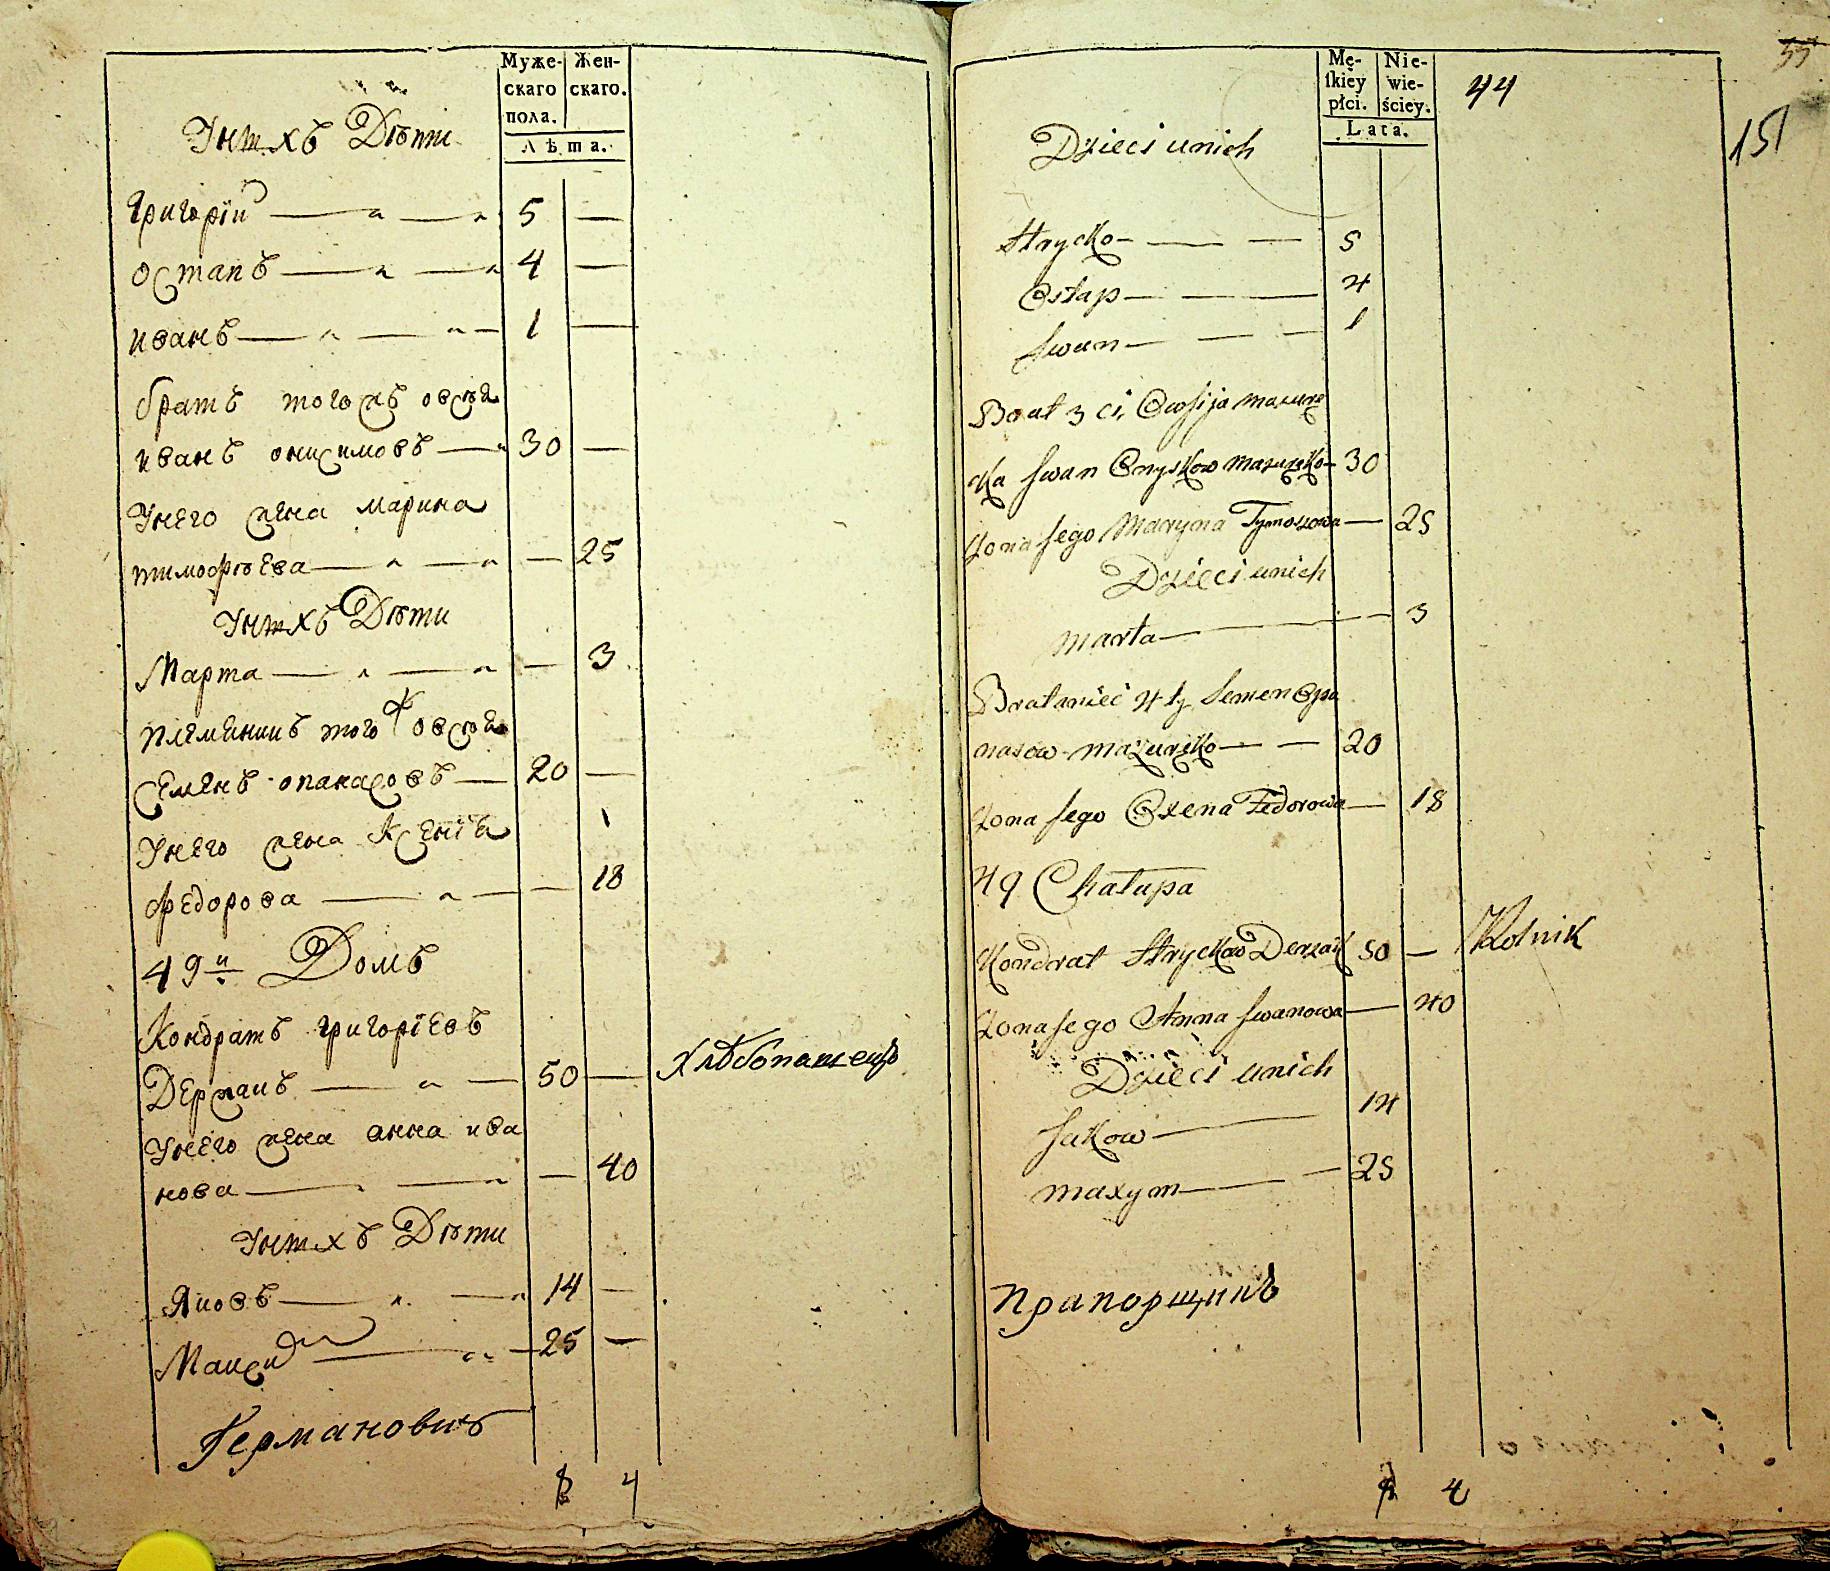 Муже- Жен-
скаго скаго.
пола.
Лѣта.
Унихъ Дѣти
Григорїй — 5 —
Остапъ — 4 —
Иванъ — 1 —
братъ тогожъ овсѣя
иванъ онисимовъ — 30 —
Унего жена Марина
тимофѣева — — 25
Унихъ Дѣти
Марта — — 3
племяникъ того ж овсѣя
Семенъ опанасовъ — 20 —
Унего жена Ксенїя
федорова — — 18
49й Домъ
Кондратъ григорїевъ
Держакъ — 50 — Хлѣбопашецъ
Унего жена анна ива
нова — — 40
Унихъ Дѣти
Яковъ — 14 —
Максим — 25 —
Германовичъ
4
Mę- Nie-
ſkiéy wie-
płci. ściey.
Lata.
44
55
151
Dzieci unich
Hrycko — 5
Ostap — 4
Iwan — 1
Brat 3 ci Owsija mazure
cka Iwan Onyskow mazurecko — 30
Zona Jego Maryna Tymoszowa — 25
Dzieci unich
marta — 3
Brataniec 4ty Semen Opa
nasow mazurecko — 20
Zona Jego Oxena Fedorowa — 18
49 Chałupa
Kondrat Hryckow Derzak 50 — Rolnik
Zona Jego Anna Iwanowa — 40
Dzieci unich
Jakow — 14
maxym — 25
Прапорщикъ
4